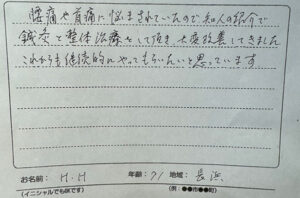 腰痛や首痛に悩まされていたので知人の紹介で
鍼灸と整体治療をして頂き大変改善してきました
これからも継続的にやってもらいたいと思っています
お名前: H.H 年齢: 71 地域: 長浜
(イニシャルでもOKです) (例:●●市●●町)